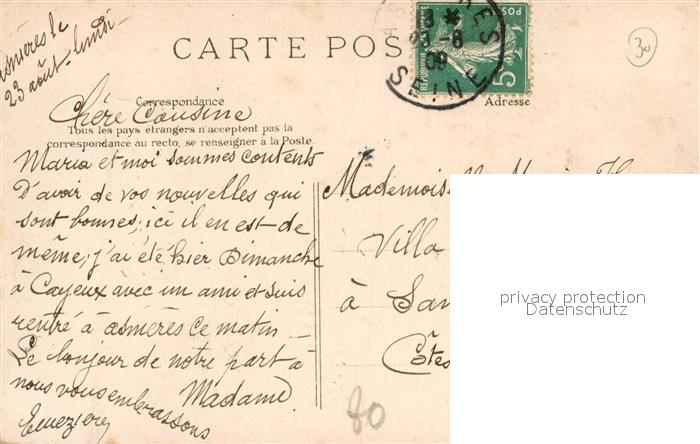 Asnières le
23 août - lundi
CARTE POS
RÉPUBLIQUE FRANÇAISE
POSTES
5
SEINE
8 09
30
Correspondance
Adresse
Chère Cousine
Tous les pays étrangers n'acceptent pas la
correspondance au recto, se renseigner à la Poste.
Maria et moi sommes contents
d'avoir de vos nouvelles qui
sont bonnes; ici il en est de
même; j'ai été hier Dimanche
à Cayeux avec un ami et suis
rentré à asnières ce matin
Le bonjour de notre part à
Madame
nous vous embrassons
Mademois
Villa
à San
Côtes
privacy protection
Datenschutz
80